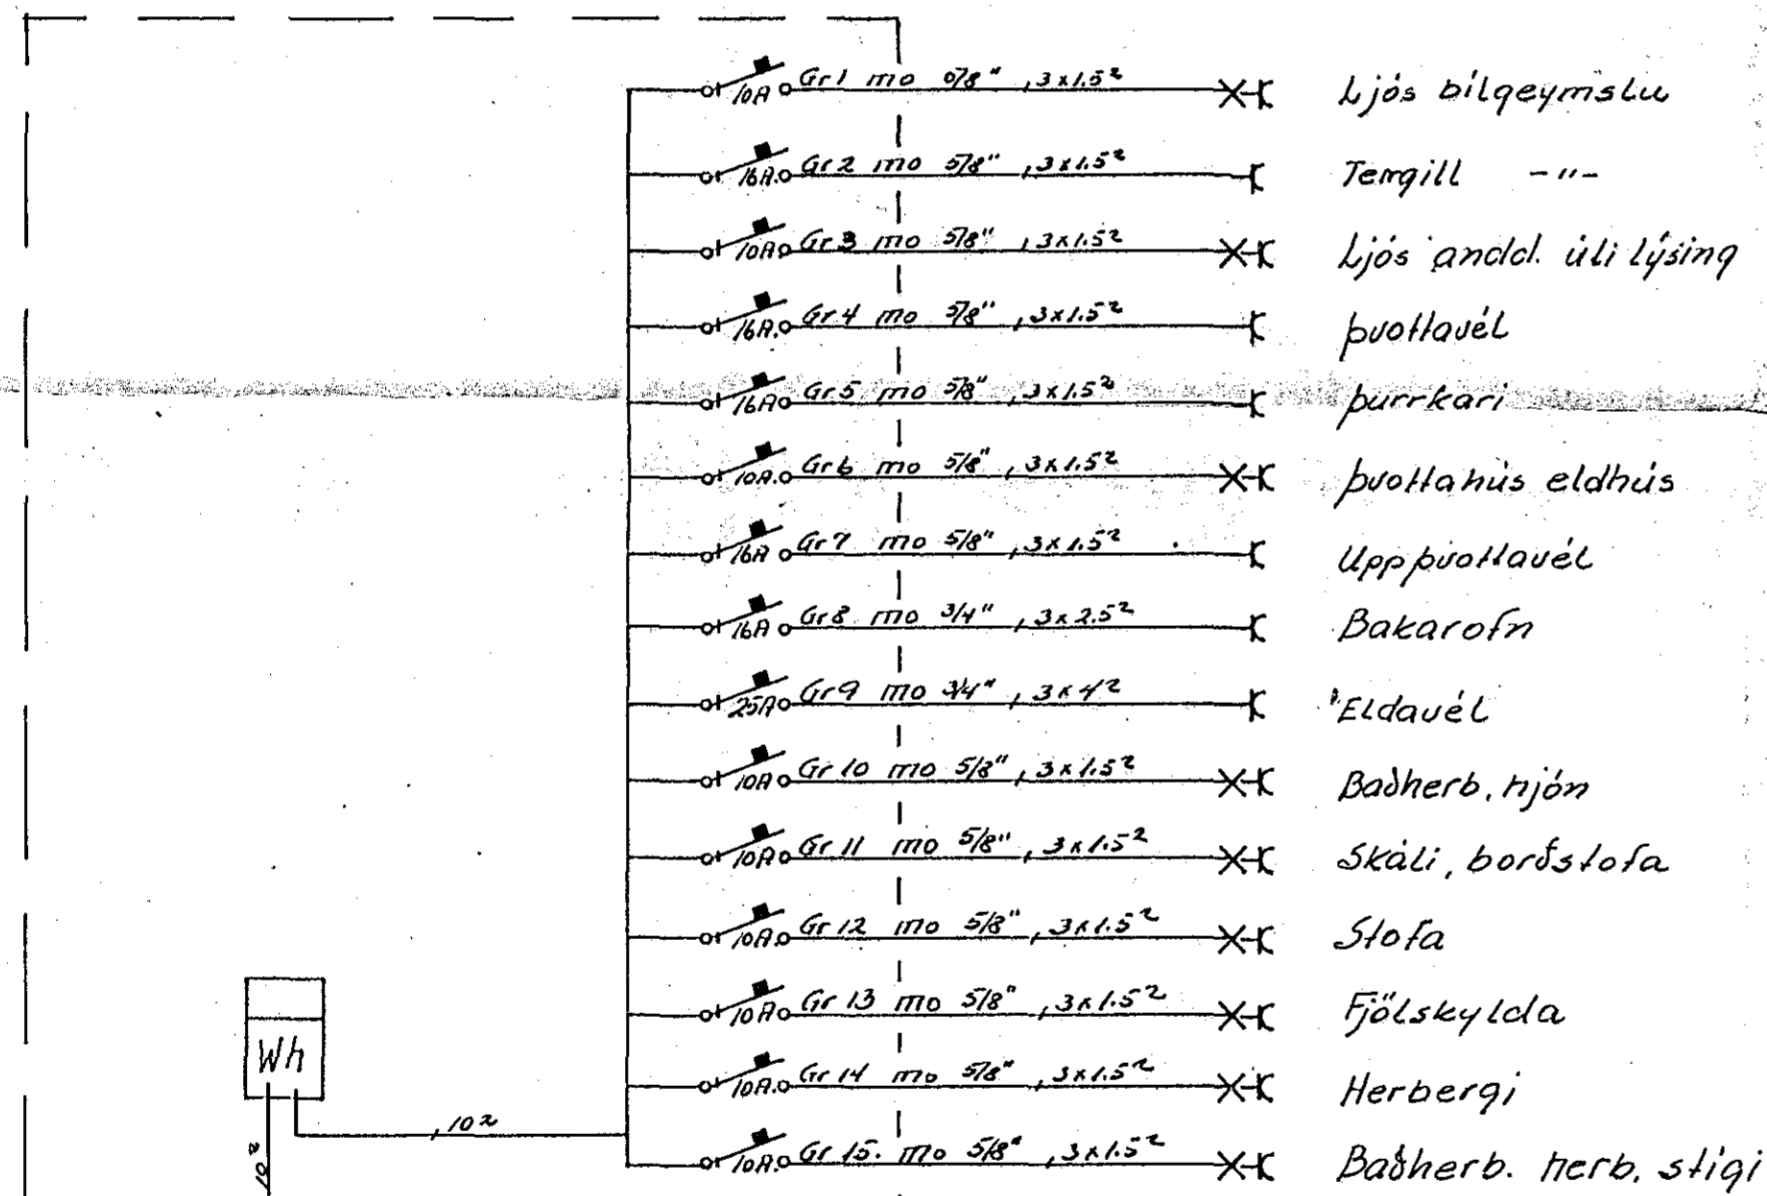 10A Gr1 mo 5/8", 3x1.5² Ljós bílgeymslu
16A. Gr2 mo 5/8", 3x1.5² Tengill -"-
10A Gr3 mo 5/8", 3x1.5² Ljós andd. úti lýsing
16A. Gr4 mo 5/8", 3x1.5² þvottavél
16A Gr5 mo 5/8", 3x1.5² þurrkari
10A. Gr6 mo 5/8", 3x1.5² þvottahús eldhús
16A Gr7 mo 5/8", 3x1.5² Uppþvottavél
16A Gr8 mo 3/4", 3x2.5² Bakarofn
25A Gr9 mo 3/4", 3x4² Eldavél
10A Gr10 mo 5/8", 3x1.5² Baðherb, hjón
10A Gr11 mo 5/8", 3x1.5² Skáli, borðstofa
10A. Gr12 mo 5/8", 3x1.5² Stofa
10A Gr13 mo 5/8", 3x1.5² Fjölskylda
Wh
10A. Gr14 mo 5/8", 3x1.5² Herbergi
10²
10A. Gr15. mo 5/8", 3x1.5² Baðherb. herb. stigi
10²